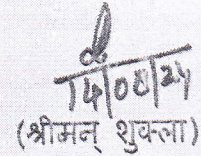 14/08/24
(श्रीमन् शुक्ला)